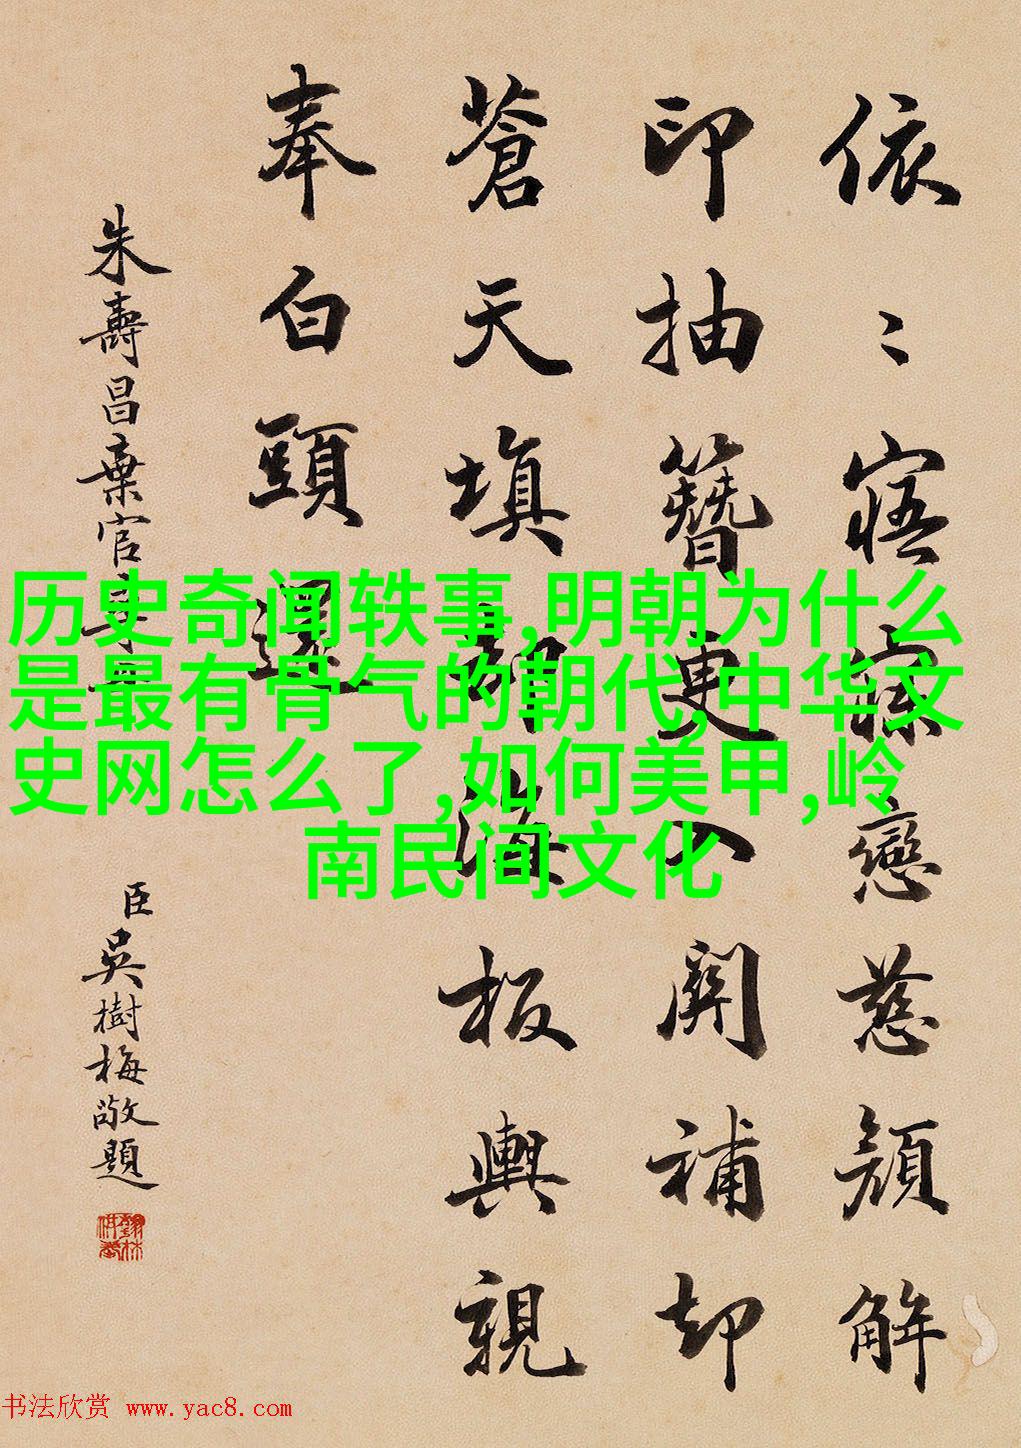 依〻寤寐戀慈顏解
印抽簪更入關補却
蒼天填海板輿親
奉白頭還
朱壽昌棄官
臣吳樹梅敬題
历史奇闻轶事,明朝为什么
是最有骨气的朝代,中华文
史网怎么了,如何美甲,岭
南民间文化
书法欣赏 www.yac8.com